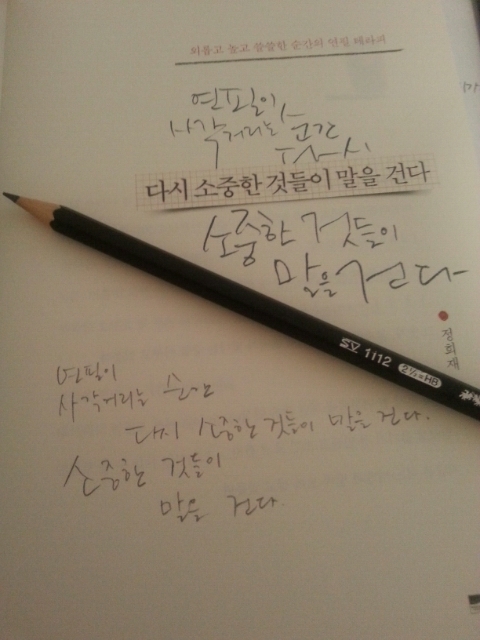 외롭고 높고 쓸쓸한 순간의 연필 테라피
연필이
사각거리는 순간
다시
다시 소중한 것들이 말을 건다
소중한 것들이
말을 건다
정희재
SV 1112 2½=HB
연필이
사각거리는 순간
다시 소중한 것들이 말을 건다.
소중한 것들이
말을 건다.